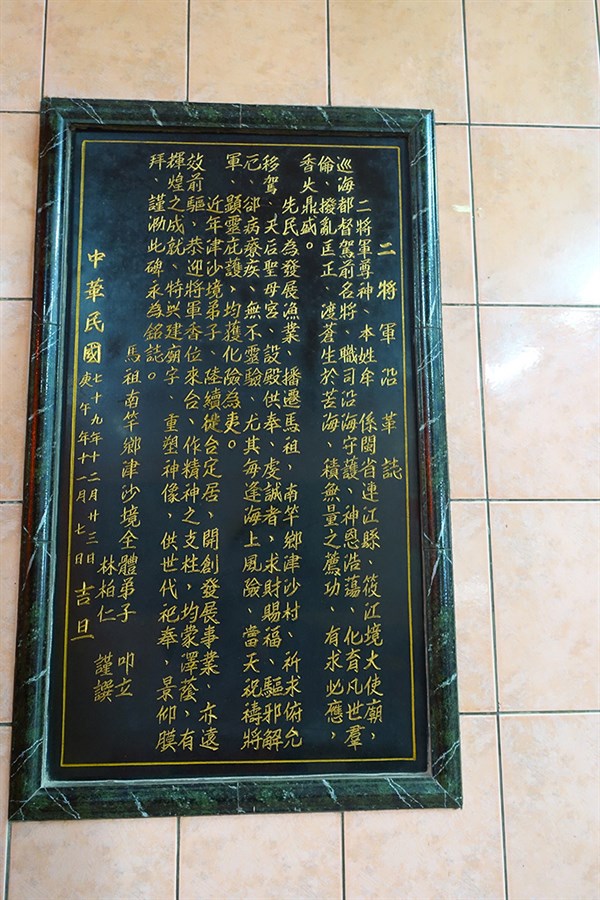 二將軍沿革誌
二將軍尊神、本姓牟　係閩省連江縣、筱江境大使廟，
巡海都督駕前名將、職司沿海守護、神恩浩蕩、化育凡世羣
倫、撥亂匡正、渡蒼生於苦海、積無量之薦功、有求必應，
香火鼎盛。
先民為發展漁業、播遷馬祖，南竿鄉津沙村、祈求俯允
移駕、天后聖母宮、設殿供奉、虔誠者，求財賜福、驅邪解
厄、卻病療疾、無不靈驗、尤其每逢海上風險、當天祝禱將
軍、顯靈庇護，均獲化險為夷。
近年津沙境弟子、陸續徙台定居，開創發展事業、亦遠
效前驅、恭迎將軍香位來台、作精神之支柱，均蒙澤蔭，有
輝煌之成就、特興建廟宇、重塑神像，供世代祀奉、景仰膜
拜、謹泐此碑永為銘誌。
馬祖南竿鄉津沙境全體弟子　叩立
林柏仁　謹撰
中華民國七十九年十二月廿三日
庚午年十一月七日吉旦